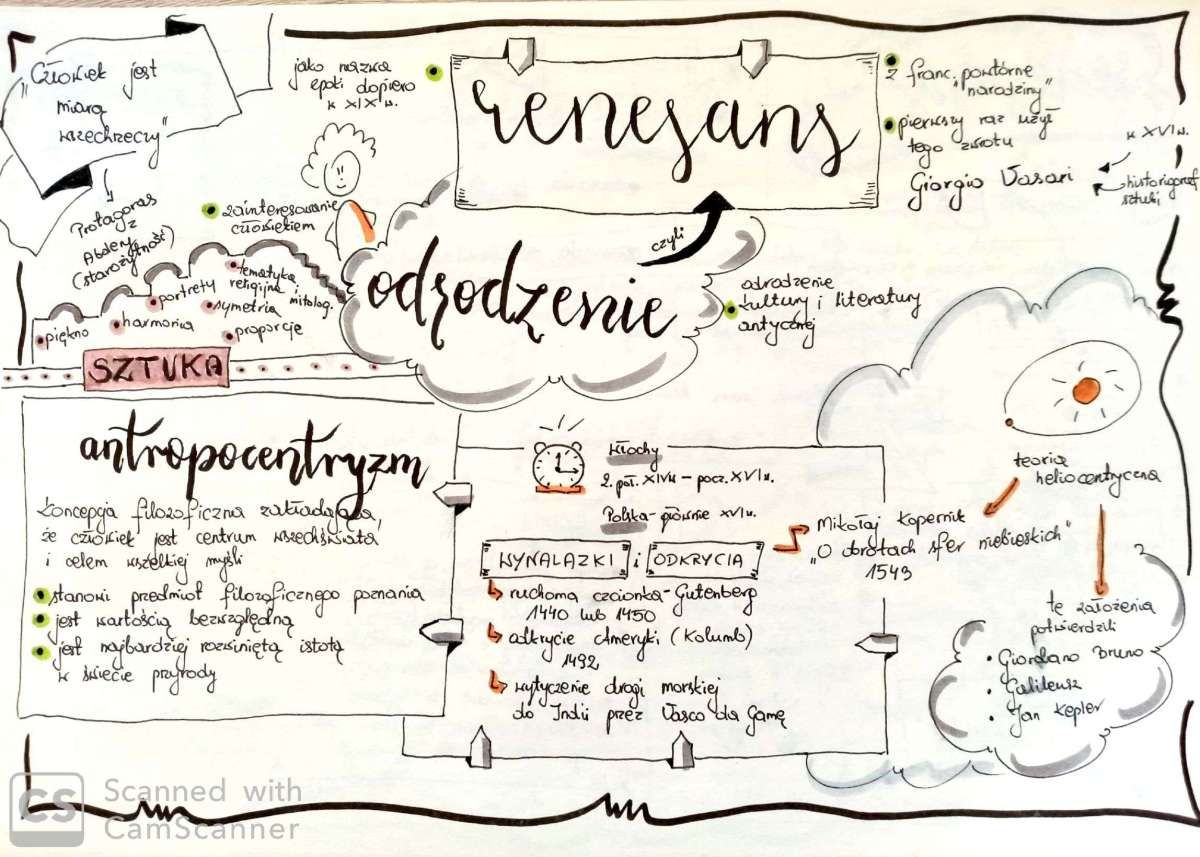 „Człowiek jest
miarą
wszechrzeczy"
Protagoras
z
Abdery
(starożytność)
jako nazwa
epoki dopiero
w XIX w.
renesans
z franc. „powtórne
narodziny"
pierwszy raz użył
tego zwrotu
Giorgio Vasari
w XVI w.
historiograf
sztuki
zainteresowanie
człowiekiem
czyli
odrodzenie
odrodzenie
kultury i literatury
antycznej
tematyka
religijna i
mitolog.
portrety
symetria
piękno
harmonia
proporcje
SZTUKA
antropocentryzm
koncepcja filozoficzna zakładająca,
że człowiek jest centrum wszechświata
i celem wszelkiej myśli
stanowi przedmiot filozoficznego poznania
jest wartością bezwzględną
jest najbardziej rozwiniętą istotą
w świecie przyrody
Włochy
2. poł. XIV w – pocz. XVI w.
Polska - głównie XVI w.
WYNALAZKI i ODKRYCIA
ruchoma czcionka - Gutenberg
1440 lub 1450
odkrycie Ameryki (Kolumb)
1492
wytyczenie drogi morskiej
do Indii przez Vasco da Gamę
teoria
heliocentryczna
Mikołaj Kopernik
„O obrotach sfer niebieskich"
1543
te założenia
potwierdzili
• Giordano Bruno
• Galileusz
• Jan Kepler
CS
Scanned with
CamScanner